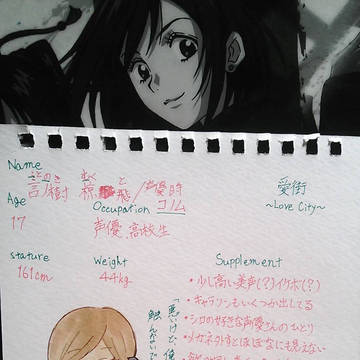 Name
ことのき　むくと
言ノ樹　椋飛／声優時
コノム
愛街
~Love City~
Age
17
Occupation
声優 高校生
stature
161cm
Weight
44kg
Supplement
・少し高い美声(?)イケボ(?)
・キャラソンもいくつか出してる
・シロの好きな声優さんのひとり
・メガネとるとほぼなにも見えない
「悪いけど、俺
触んないで